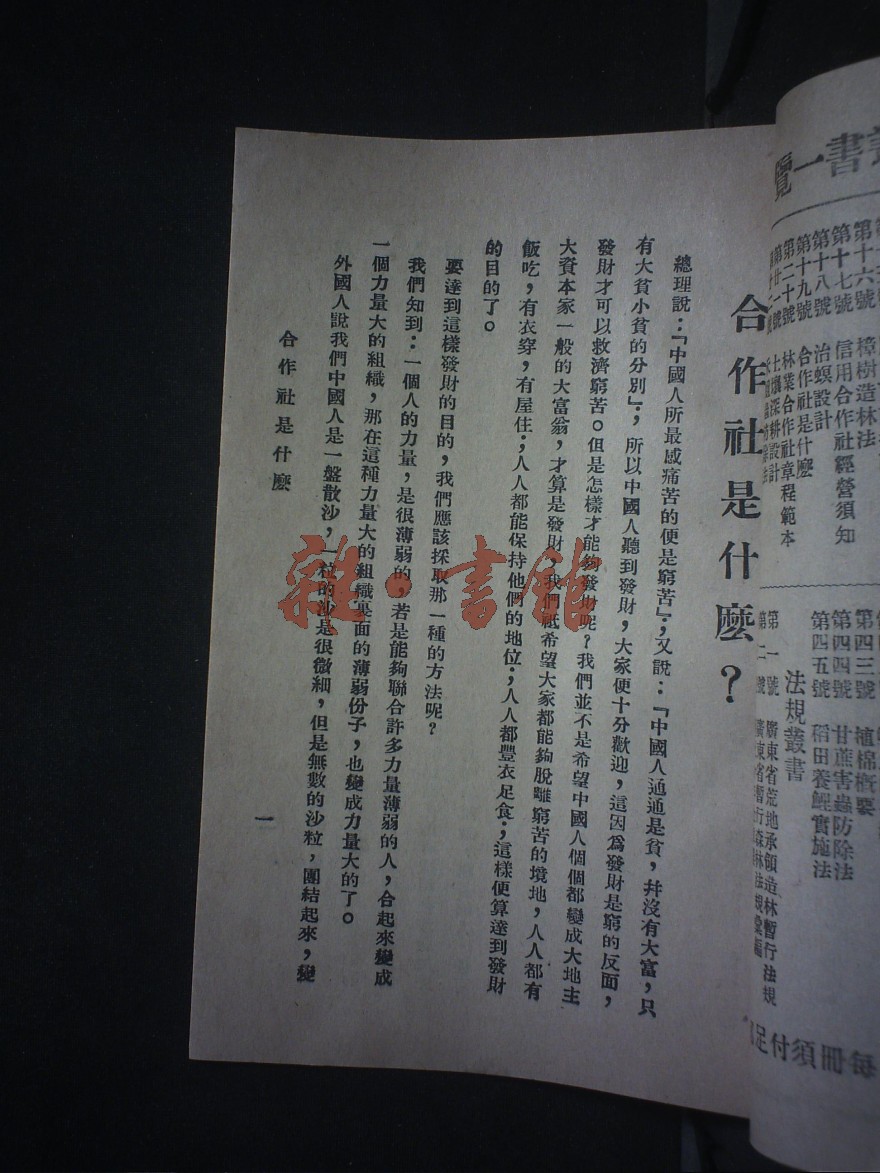 書一覽
第十六號 樟樹造林法
第十七號 信用合作社經營須知
第十八號 治螟設計
第十九號 合作社是什麼
第二十號 林業合作社章程範本
第四三號 植棉概要
第四四號 甘蔗害蟲防除法
第四五號 稻田養鯉實施法
法規叢書
第一號 廣東省荒地承領造林暫行法規
每冊須付足
合作社是什麼？
總理說：「中國人所最感痛苦的便是窮苦」；又說：「中國人通通是貧，幷沒有大富，只
有大貧小貧的分別」；所以中國人聽到發財，大家便十分歡迎，這因爲發財是窮的反面，
發財才可以救濟窮苦。但是怎樣才能夠發財呢？我們並不是希望中國人個個都變成大地主
大資本家一般的大富翁，才算是發財，我們祗希望大家都能夠脫離窮苦的境地，人人都有
飯吃，有衣穿，有屋住；人人都能保持他們的地位；人人都豐衣足食；這樣便算達到發財
的目的了。
要達到這樣發財的目的，我們應該採取那一種的方法呢？
我們知到：一個人的力量，是很薄弱的，若是能夠聯合許多力量薄弱的人，合起來變成
一個力量大的組織，那在這種力量大的組織裏面的薄弱份子，也變成力量大的了。
外國人說我們中國人是一盤散沙，一粒的沙是很微細，但是無數的沙粒，團結起來，變
合作社是什麼
一
雜·書館